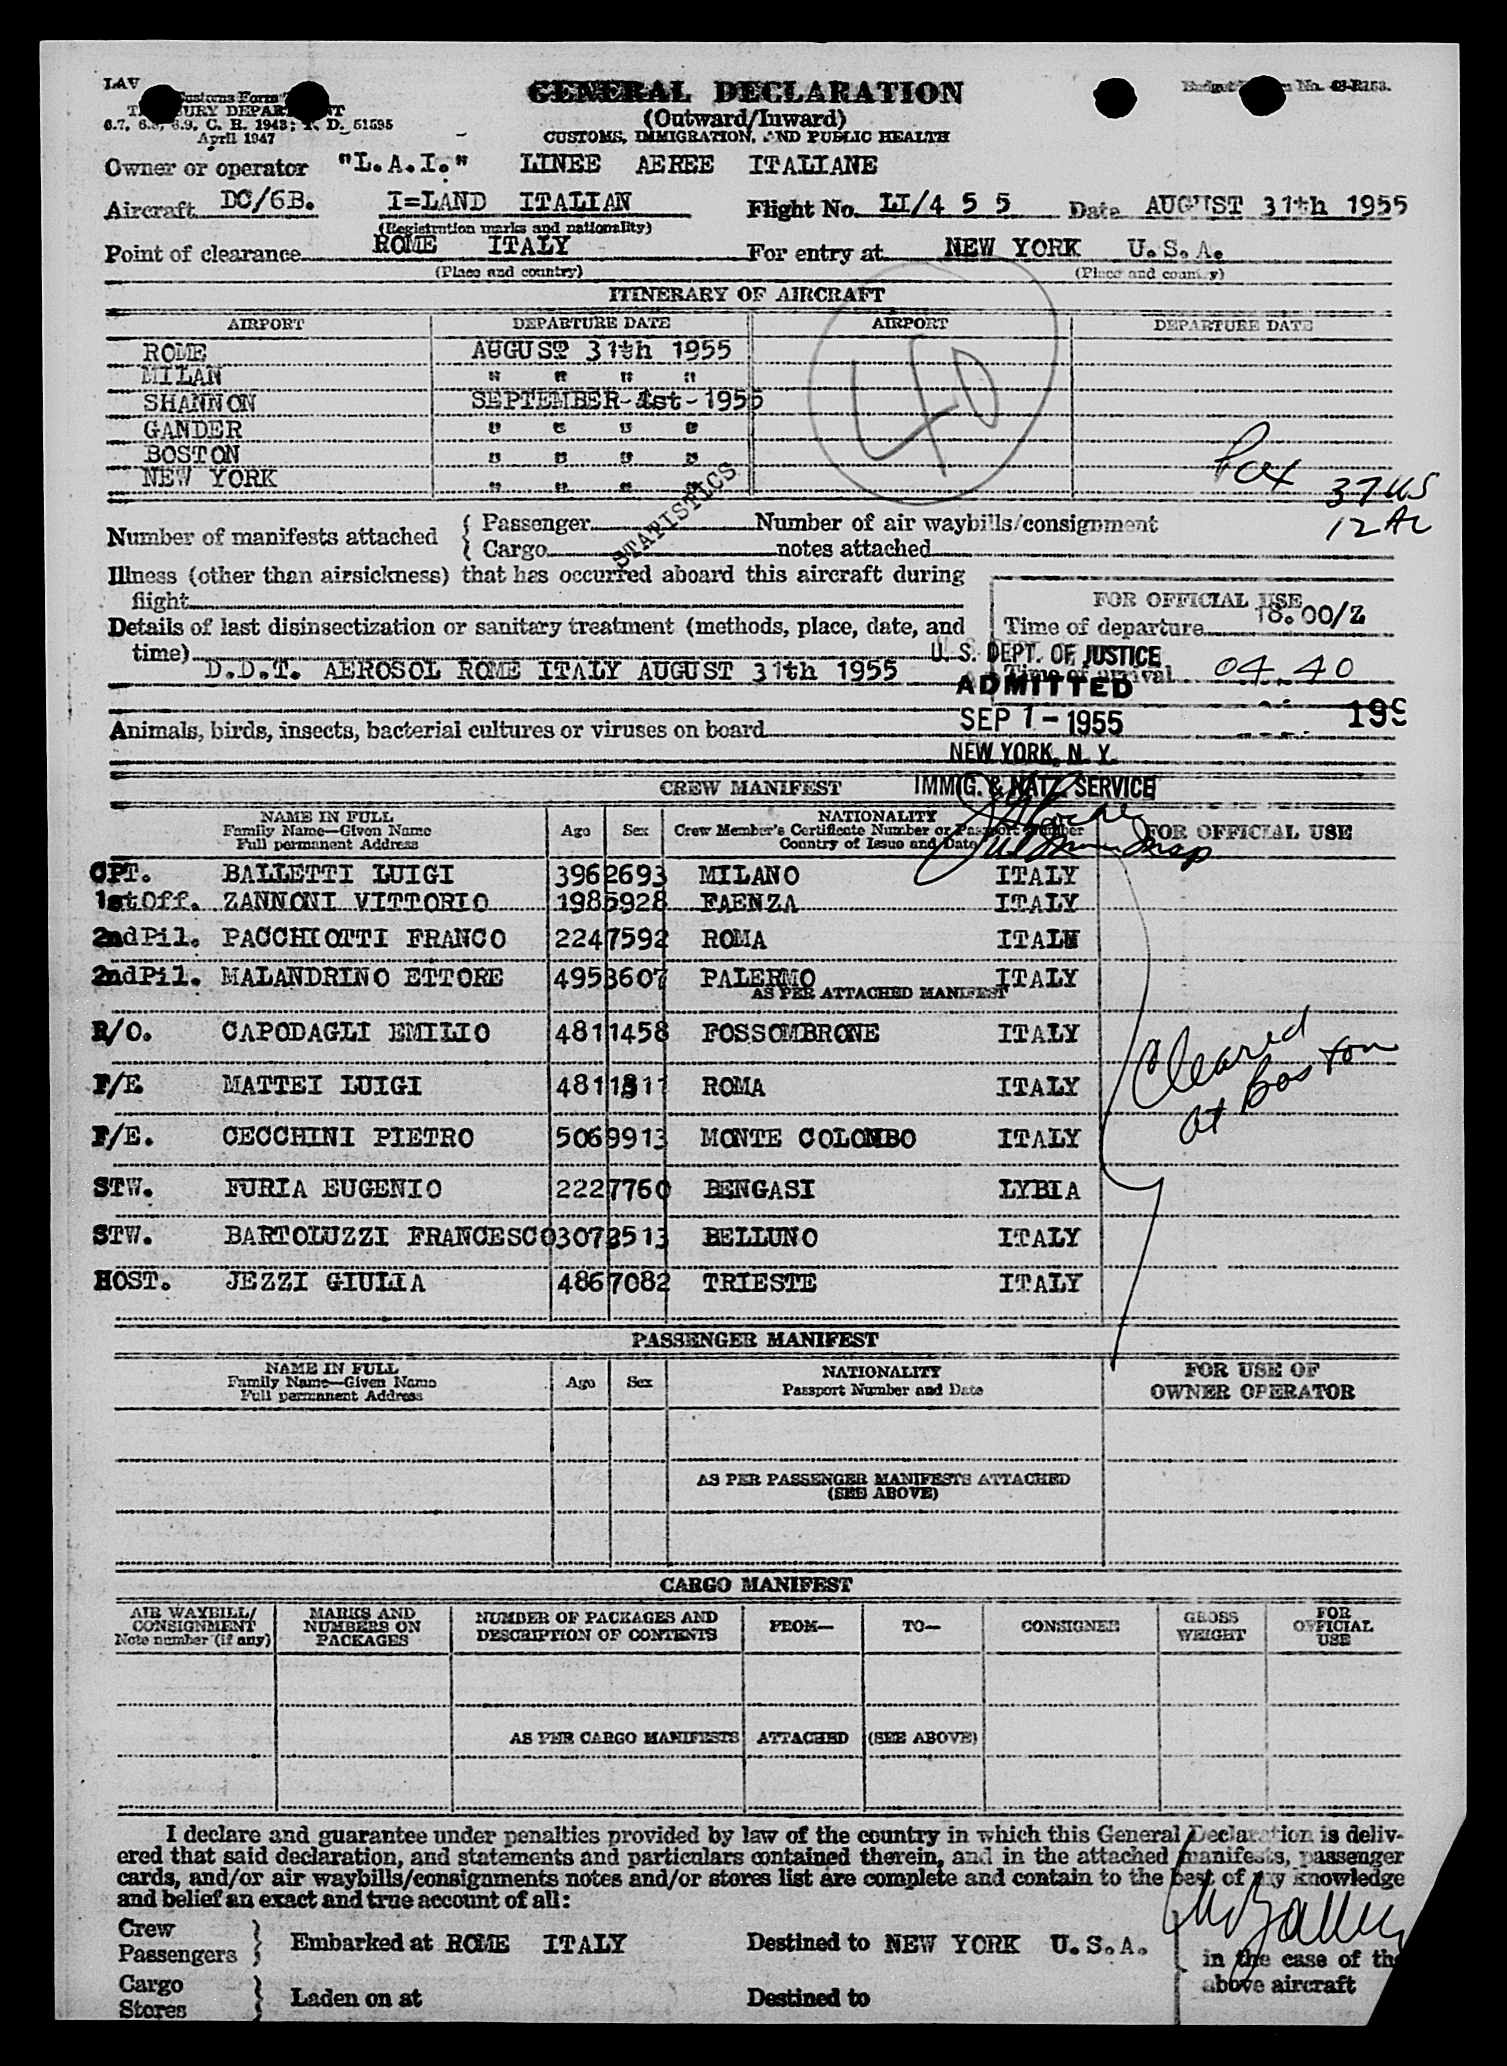 LAV
Customs Form
GENERAL DECLARATION
Budget No. 48-R153.
(Outward/Inward)
6.7, 6.8, 6.9, C. R. 1943; T. D. 51595
April 1947
CUSTOMS, IMMIGRATION, AND PUBLIC HEALTH
Owner or operator "L.A.I." LINEE AEREE ITALIANE
Aircraft DC/6B. I=LAND ITALIAN Flight No. LI/4 5 5 Date AUGUST 31th 1955
(Registration marks and nationality)
Point of clearance ROME ITALY For entry at NEW YORK U.S.A.
(Place and country) (Place and country)
ITINERARY OF AIRCRAFT
AIRPORT DEPARTURE DATE AIRPORT DEPARTURE DATE
ROME AUGUST 31th 1955
MILAN " " " "
SHANNON SEPTEMBER-1st-1955
GANDER " " " "
BOSTON " " " "
NEW YORK " " " "
40
Pax 37 US
12 AL
STATISTICS
Number of manifests attached { Passenger Number of air waybills/consignment
{ Cargo notes attached
Illness (other than airsickness) that has occurred aboard this aircraft during
flight
FOR OFFICIAL USE
Details of last disinsectization or sanitary treatment (methods, place, date, and
Time of departure 18.00/Z
time) D.D.T. AEROSOL ROME ITALY AUGUST 31th 1955
Time of arrival 04.40
U. S. DEPT. OF JUSTICE
ADMITTED
SEP 1 - 1955
NEW YORK, N. Y.
IMMIG. & NATZ. SERVICE
199
Animals, birds, insects, bacterial cultures or viruses on board
CREW MANIFEST
NAME IN FULL
Family Name—Given Name
Full permanent Address
Age Sex
NATIONALITY
Crew Member's Certificate Number or Passport Number
Country of Issue and Date
FOR OFFICIAL USE
CPT. BALLETTI LUIGI 3962693 MILANO ITALY
1st Off. ZANNONI VITTORIO 1985928 FAENZA ITALY
2nd Pil. PACCHIOTTI FRANCO 2247592 ROMA ITALY
2nd Pil. MALANDRINO ETTORE 4953607 PALERMO ITALY
AS PER ATTACHED MANIFEST
R/O. CAPODAGLI EMILIO 4811458 FOSSOMBRONE ITALY
F/E MATTEI LUIGI 4811811 ROMA ITALY
F/E. CECCHINI PIETRO 5069913 MONTE COLOMBO ITALY
STW. FURIA EUGENIO 2227760 BENGASI LYBIA
STW. BARTOLUZZI FRANCESCO 3073513 BELLUNO ITALY
HOST. JEZZI GIULIA 4867082 TRIESTE ITALY
Cleared
at Boston
PASSENGER MANIFEST
NAME IN FULL
Family Name—Given Name
Full permanent Address
Age Sex
NATIONALITY
Passport Number and Date
FOR USE OF
OWNER OPERATOR
AS PER PASSENGER MANIFESTS ATTACHED
(SEE ABOVE)
CARGO MANIFEST
AIR WAYBILL/
CONSIGNMENT
Note number (if any)
MARKS AND
NUMBERS ON
PACKAGES
NUMBER OF PACKAGES AND
DESCRIPTION OF CONTENTS
FROM— TO— CONSIGNEE
GROSS
WEIGHT
FOR
OFFICIAL
USE
AS PER CARGO MANIFESTS ATTACHED (SEE ABOVE)
I declare and guarantee under penalties provided by law of the country in which this General Declaration is deliv-
ered that said declaration, and statements and particulars contained therein, and in the attached manifests, passenger
cards, and/or air waybills/consignments notes and/or stores list are complete and contain to the best of my knowledge
and belief an exact and true account of all:
Crew
Passengers } Embarked at ROME ITALY Destined to NEW YORK U.S.A.
in the case of the
above aircraft
Cargo
Stores } Laden on at Destined to